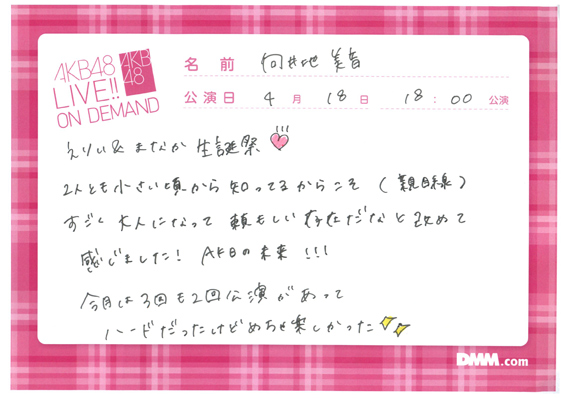 AKB48
LIVE!!
ON DEMAND
AKB
48
名前 向井地 美音
公演日 4月18日 18:00公演
えりい&まなか 生誕祭
2人とも小さい頃から知ってるからこそ(親目線)
すごく大人になって頼もしい存在だなと改めて
感じました! AKBの未来!!!
今月は3回も2回公演があって
ハードだったけどめちゃ楽しかった
DMM.com